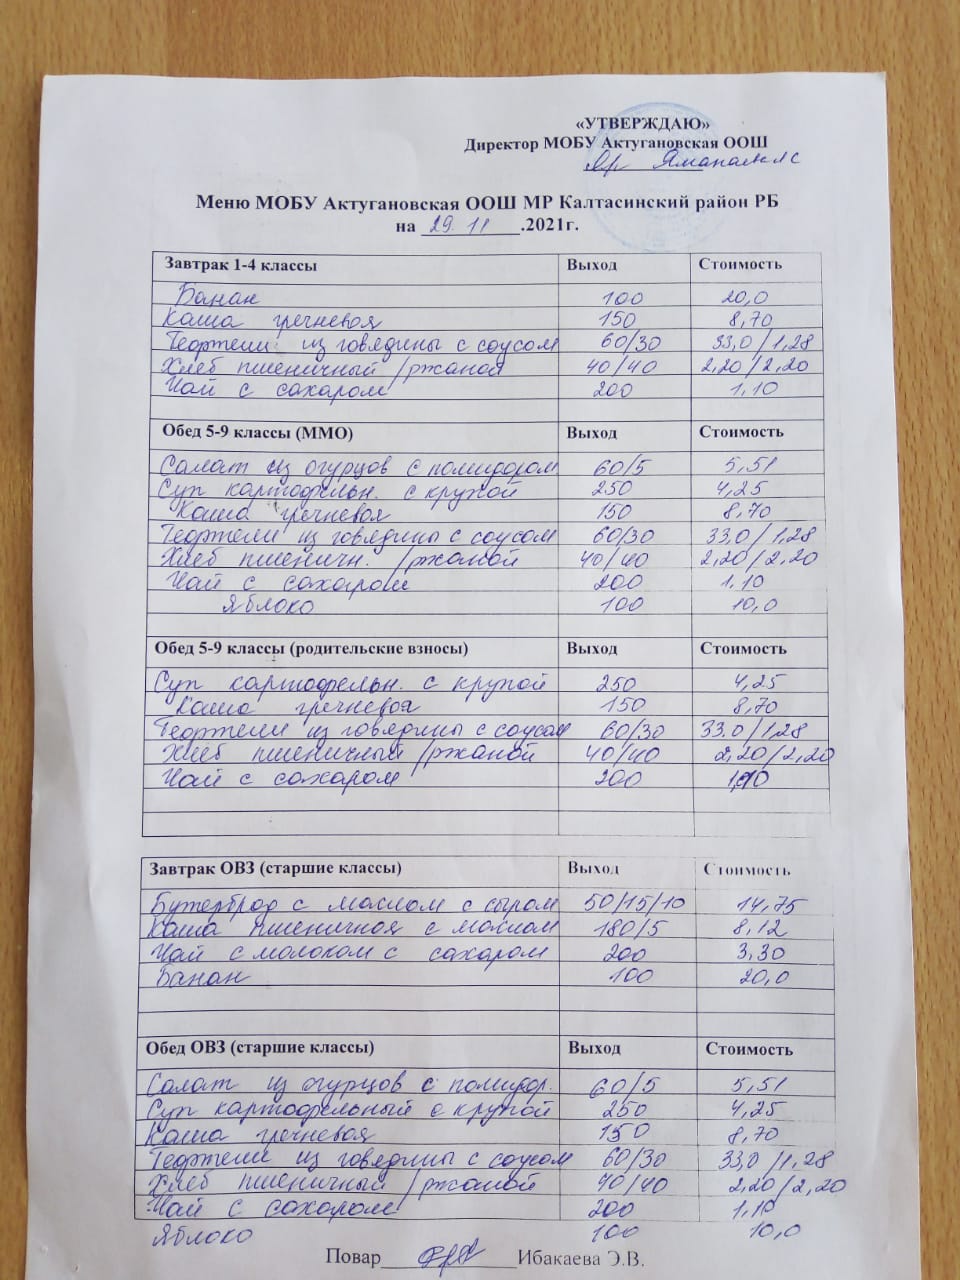 «УТВЕРЖДАЮ»
Директор МОБУ Актугановская ООШ
Меню МОБУ Актугановская ООШ МР Калтасинский район РБ
на 29.11.2021г.
Завтрак 1-4 классы Выход Стоимость
Банан 100 20,0
Каша гречневая 150 8,70
Тефтели из говядины с соусом 60/30 33,0/1,28
Хлеб пшеничный/ржаной 40/40 2,20/2,20
Чай с сахаром 200 1,10
Обед 5-9 классы (ММО) Выход Стоимость
Салат из огурцов с помидором 60/5 5,51
Суп картофельн. с крупой 250 4,25
Каша гречневая 150 8,70
Тефтели из говядины с соусом 60/30 33,0/1,28
Хлеб пшеничн. /ржаной 40/40 2,20/2,20
Чай с сахаром 200 1,10
Яблоко 100 10,0
Обед 5-9 классы (родительские взносы) Выход Стоимость
Суп картофельн. с крупой 250 4,25
Каша гречневая 150 8,70
Тефтели из говядины с соусом 60/30 33.0/1,28
Хлеб пшеничный/ржаной 40/40 2,20/2,20
Чай с сахаром 200 1,10
Завтрак ОВЗ (старшие классы) Выход Стоимость
Бутерброд с маслом с сыром 50/15/10 14,75
Каша пшеничная с маслом 180/5 8,12
Чай с молоком с сахаром 200 3,30
Банан 100 20,0
Обед ОВЗ (старшие классы) Выход Стоимость
Салат из огурцов с помидор. 60/5 5,51
Суп картофельный с крупой 250 4,25
Каша гречневая 150 8,70
Тефтели из говядины с соусом 60/30 33,0/1,28
Хлеб пшеничный/ржаной 40/40 2,20/2,20
Чай с сахаром 200 1,10
Яблоко 100 10,0
Повар Ибакаева Э.В.